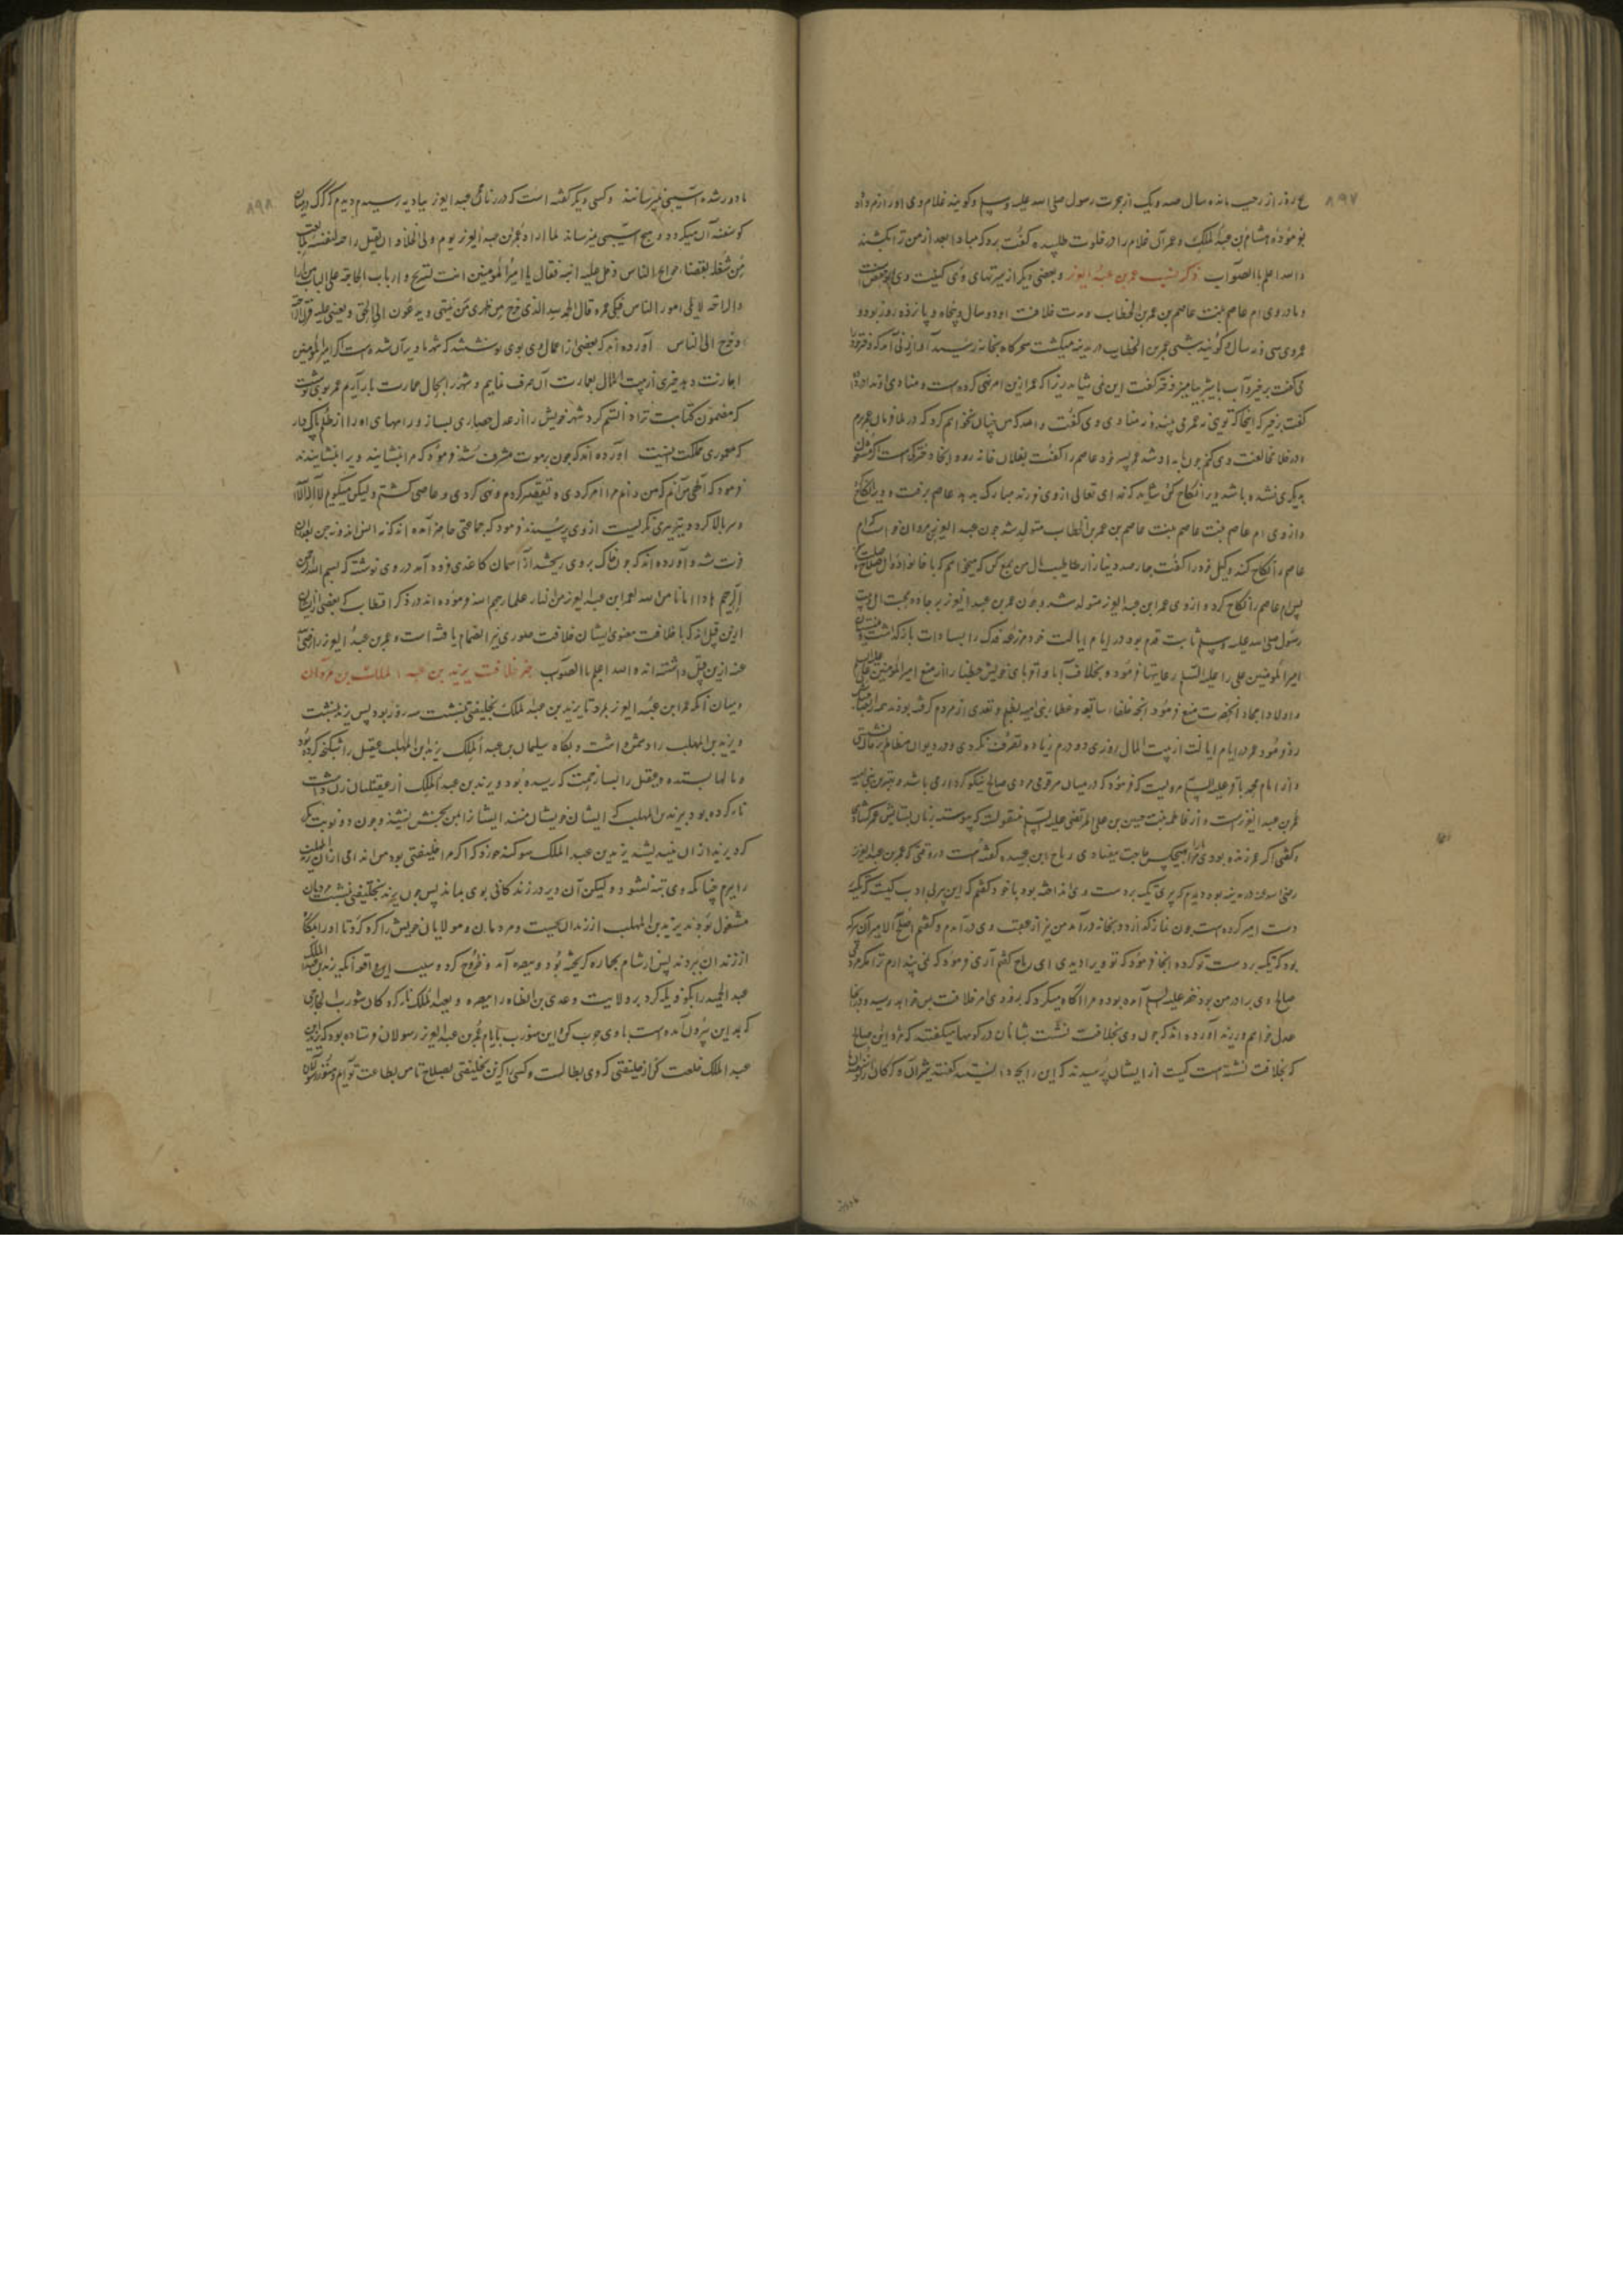 ۸۹۷
روز از رجب مانده سال صد و یک از هجرت رسول صلی الله علیه وسلم و گویند غلام وی او را زهر داد
بفرموده هشام بن عبد الملک و عمر آن غلام را در خلوت طلبیده گفت برو که مبادا بعد از من ترا بکشند
والله اعلم بالصواب ذکر نسب عمر بن عبد العزیز و بعضی دیگر از سیرتهای وی کنیت وی ابو حفص است
و مادر وی ام عاصم بنت عاصم بن عمر بن الخطاب و مدت خلافت او دو سال و پنجاه و پانزده روز بود و
عمر وی سی و نه سال گویند شبی عمر بن الخطاب در مدینه میگشت سحرگاه بخانه رسید آواز زنی آمد که دختر خود را
می گفت برخیز و آب با شیر بیامیز دختر گفت این نمی شاید زیرا که عمر ازین امر نهی کرده است و منادی
گفت برخیز که اینجا که تویی نه عمر می بیند و نه منادی وی گفت والله که من پنهان نخواهم کرد که در ملا فرمان عمر برم
و در خلا مخالفت وی کنم چون بامداد شد عمر پسر خود عاصم را گفت بفلان خانه رو و آنجا دخترکی است اگر مشغول
بدیگری نشده باشد ویرا نکاح کن شاید که خدای تعالی از وی فرزند مبارک بدهد عاصم برفت و ویرا نکاح
و از وی ام عاصم بنت عاصم بن عمر بن الخطاب متولد شد چون عبد العزیز بن مروان خواست که ام
عاصم را نکاح کند وکیل خود را گفت چهار صد دینار از طایب مال من جمع کن که میخواهم که با خانواده اهل صلاح
پس ام عاصم را نکاح کرد و از وی عمر ابن عبد العزیز متولد شد و چون عمر بن عبد العزیز بر جاده محبت اهل بیت
رسول صلی الله علیه وسلم ثابت قدم بود در ایام ایالت خود مزرعه فدک را بسادات باز گذاشت
امیر المومنین علی را علیه السلام رعایتها فرمود و بخلاف آبا و اقربای خویش خطبا را از منع امیر المومنین علی
و اولاد امجاد آنحضرت منع فرمود آنچه خلفاء سابقه و عظماء بنی امیه بظلم و تعدی از مردم گرفته بودند
رد فرمود و در ایام ایالت از بیت المال روزی دو درم زیاده تصرف نکردی و در دیوان مظالم
و از امام محمد باقر علیه السلام مرویست که فرمود که در میان هر قومی مردی صالح نیکو کرداری باشد و بهترین بنی امیه
عمر بن عبد العزیز است و از فاطمه بنت حسین بن علی المرتضی علیه السلام منقولست که پیوسته زبان بستایش عمر گشادی
و گفتی اگر عمر زنده بودی ما را بهیچکس حاجت نیفتادی ریاح ابن عبیده گفته است در وقتی که عمر بن عبد العزیز
رضی الله عنه در مدینه بود دیدم که پیری تکیه بر دست وی انداخته بود با خود گفتم که این پیر بی ادب کیست که تکیه
دست امیر کرده است چون نماز گذارد و بخانه درآمد من نیز از عقب وی درآمدم و گفتم اصلح الله الامیر آن پیر که
بود که تکیه بر دست تو کرده آنجا فرمود که تو ویرا دیدی ای ریاح گفتم آری فرمود که نمی پندارم ترا مگر مردی
صالح وی برادر من بود خضر علیه السلام آمده بود و مرا آگاه میکرد که بزودی امر خلافت بمن خواهد رسید و در آنجا
عدل خواهم ورزید آورده اند که چون وی بخلافت نشست شبانان در کوهها میگفتند که مرد این صالح
که بخلافت نشسته است کیست از ایشان پرسیدند که این را چه دانستید گفتند شیران و گرگان از گوسفندان ما
۸۹۸
ما دور شده آسیبی نمیرسانند و کسی دیگر گفته است که در زمان عمر عبد العزیز ببادیه رسیدم دیدم که گرگ در میان
گوسفندان میگردد و هیچ آسیبی نمیرساند لما اراد عمر بن عبد العزیز یوم ولی الخلافة ان یقیل راحة لنفسه
من شغله بقضاء حوایج الناس دخل علیه ابنه فقال یا امیر المومنین انت تستریح و ارباب الحاجة علی الباب
و الراحة لا یلی امور الناس فبکی عمر و قال الحمد لله الذی اخرج من ظهری من ینبهنی و یدعون الی الحق و یعیننی علیه
و خرج الی الناس آورده اند که بعضی از عمال وی بوی نوشتند که شهر ما ویران شده است اگر امیر المومنین
اجازت دهد چیزی از بیت المال بعمارت آن صرف نمایم و شهر را بحال عمارت باز آرم عمر بوی نوشت
که مضمون کتابت ترا دانستم گرد شهر خویش را از عدل حصاری بساز و راههای او را از ظلم پاک دار
که معموری مملکت اینست آورده اند که چون بر موت مشرف شد فرمود که مرا بنشانید ویرا بنشانیدند
فرمود که الهی من آنم که من را امر کردی و تقصیر کردم و نهی کردی و عاصی گشتم ولیکن میگویم لا اله الا الله
و سر بالا کرد و بتیزی نگریست از وی پرسیدند فرمود که جماعتی حاضر آمده اند که نه انس اند و نه جن بعد از آن
فوت شد و آورده اند که چون خاک بر وی ریختند از آسمان کاغذی فرود آمد در وی نوشته که بسم الله الرحمن
الرحیم هذا امانا من الله لعمر ابن عبد العزیز من النار علما رحمهم الله فرموده اند در ذکر اقطاب که بعضی از ایشان
ازین قبیل اند که با خلافت معنوی ایشان خلافت صوری نیز انضمام یافته است و عمر بن عبد العزیز را رضی الله
عنه ازین قبیل داشته اند والله اعلم بالصواب خبر خلافت یزید بن عبد الملک بن مروان
و میان آنکه عمر ابن عبد العزیز بمرد تا یزید بن عبد الملک بخلیفتی بنشست سه روز بود پس یزید بنشست
و یزید بن المهلب را دشمن داشت و بگاه سلیمان بن عبد الملک یزید ابن المهلب عقیل را شکنجه کرده بود
و مالها بستده و عقیل را بسا زحمت که رسیده بود و یزید بن عبد الملک از عقیلیان زن داشت
نامه کرده بود بیزید بن المهلب که ایشان خویشان منند ایشانرا بمن بخش نبخشید و چون دو نوبت
کرد یزید از آن نیندیشید یزید بن عبد الملک سوگند خورد که اگر مرا خلیفتی بود من اندامی از آن یزید بن المهلب
را ببرم چنانکه وی تبه نشود و لیکن آن ویرا در زندگانی بوی بماند پس چون یزید بخلیفتی نشست مردمان
مشغول بودند یزید بن المهلب از زندان بجست و مردمان و مولایان خویش را گرد کرد تا او را بگاه
از زندان ببردند پس از شام بحاره گریخته بود و ببصره آمد و خروج کرد و سبب این واقعه آنکه یزید بن عبد الملک
عبد الحمید را بکوفه یله کرد بر ولایت و عدی بن ارطاة را ببصره و بعبد الملک نامه کرد
که بد این بیرون آمده است با وی حرب کن و این شوذب بایام عمر بن عبد العزیز رسولان فرستاده بود که یزید بن
عبد الملک خلعت کن از خلیفتی که وی بطالست و کسی را کن بخلیفتی بصلاح تا من بطاعت تو آیم